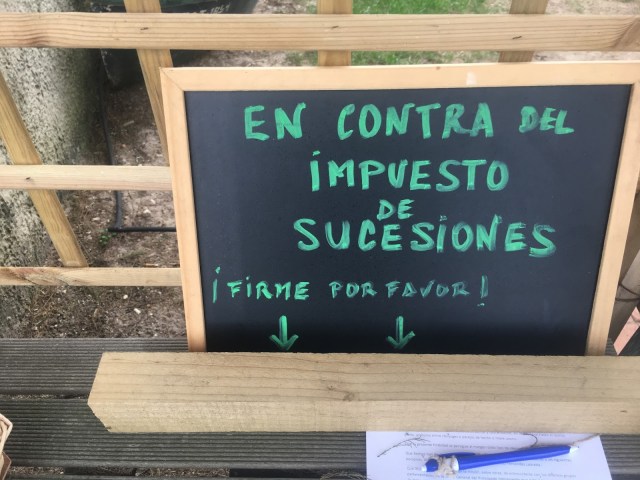 EN CONTRA DEL
IMPUESTO
DE
SUCESIONES
¡FIRME POR FAVOR!